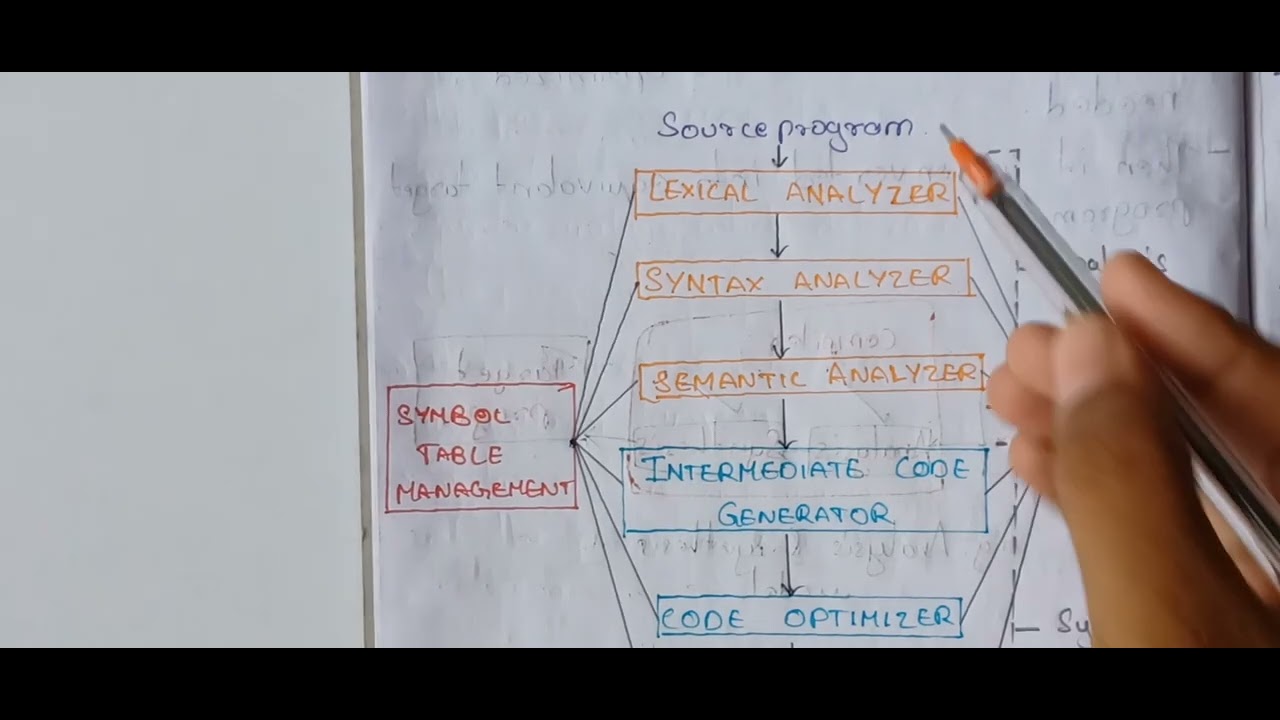 Source program
LEXICAL ANALYZER
SYNTAX ANALYZER
SEMANTIC ANALYZER
SYMBOL
TABLE
MANAGEMENT
INTERMEDIATE CODE
GENERATOR
CODE OPTIMIZER
Sy